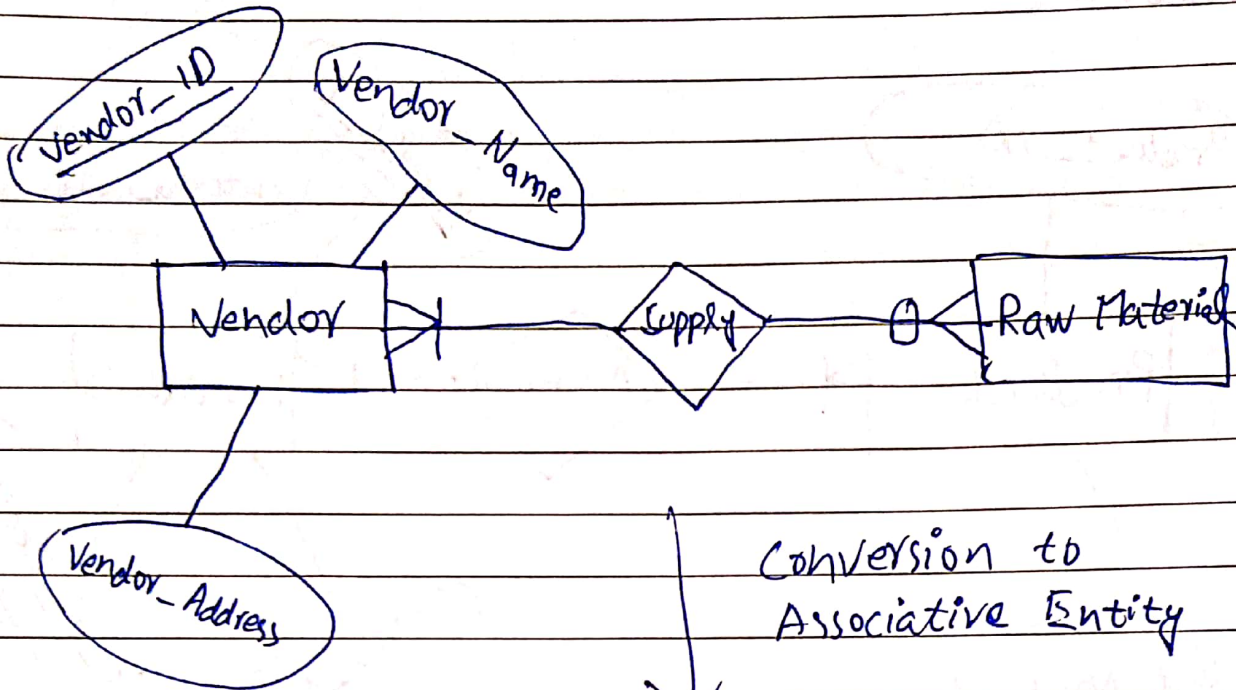 Vendor_ID
Vendor_Name
Vendor
Supply
Raw Material
Vendor_Address
Conversion to
Associative Entity